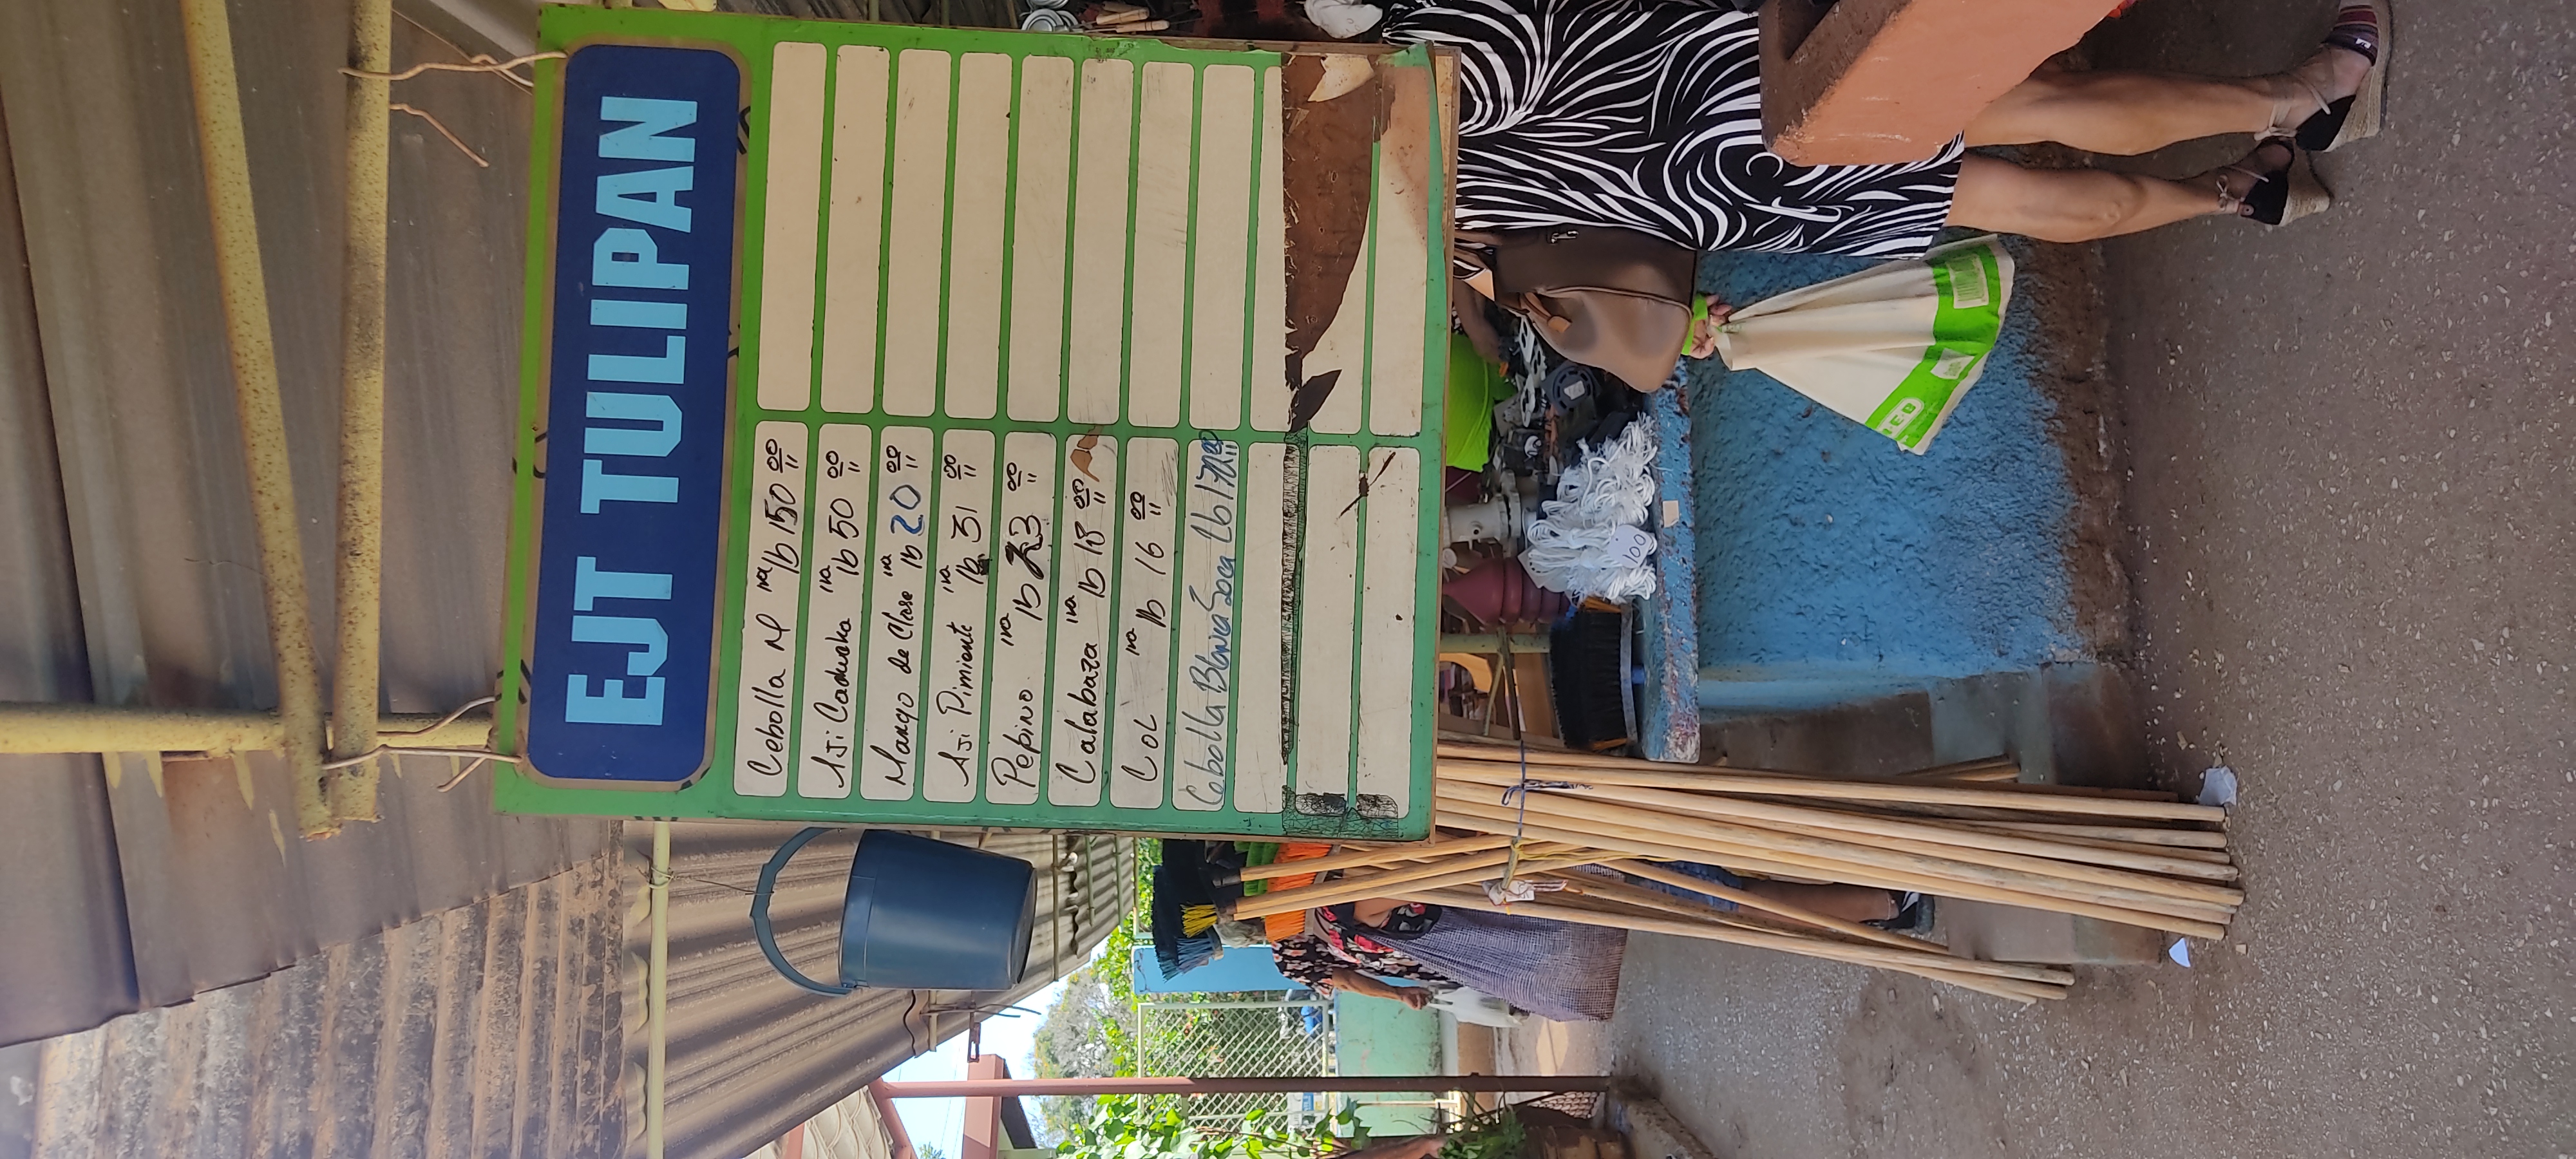 EJT TULIPAN
Cebolla M 1ra lb 150 00
Aji Cachucha 1ra lb 50 00
Mango de Clase 1ra lb 20 00
Aji Pimiente 1ra lb 31 00
Pepino. 1ra lb 23 00
Calabaza 1ra lb 18 00
COL 1ra lb 16 00
Cebolla Blanca Seca Lb 170 00
100